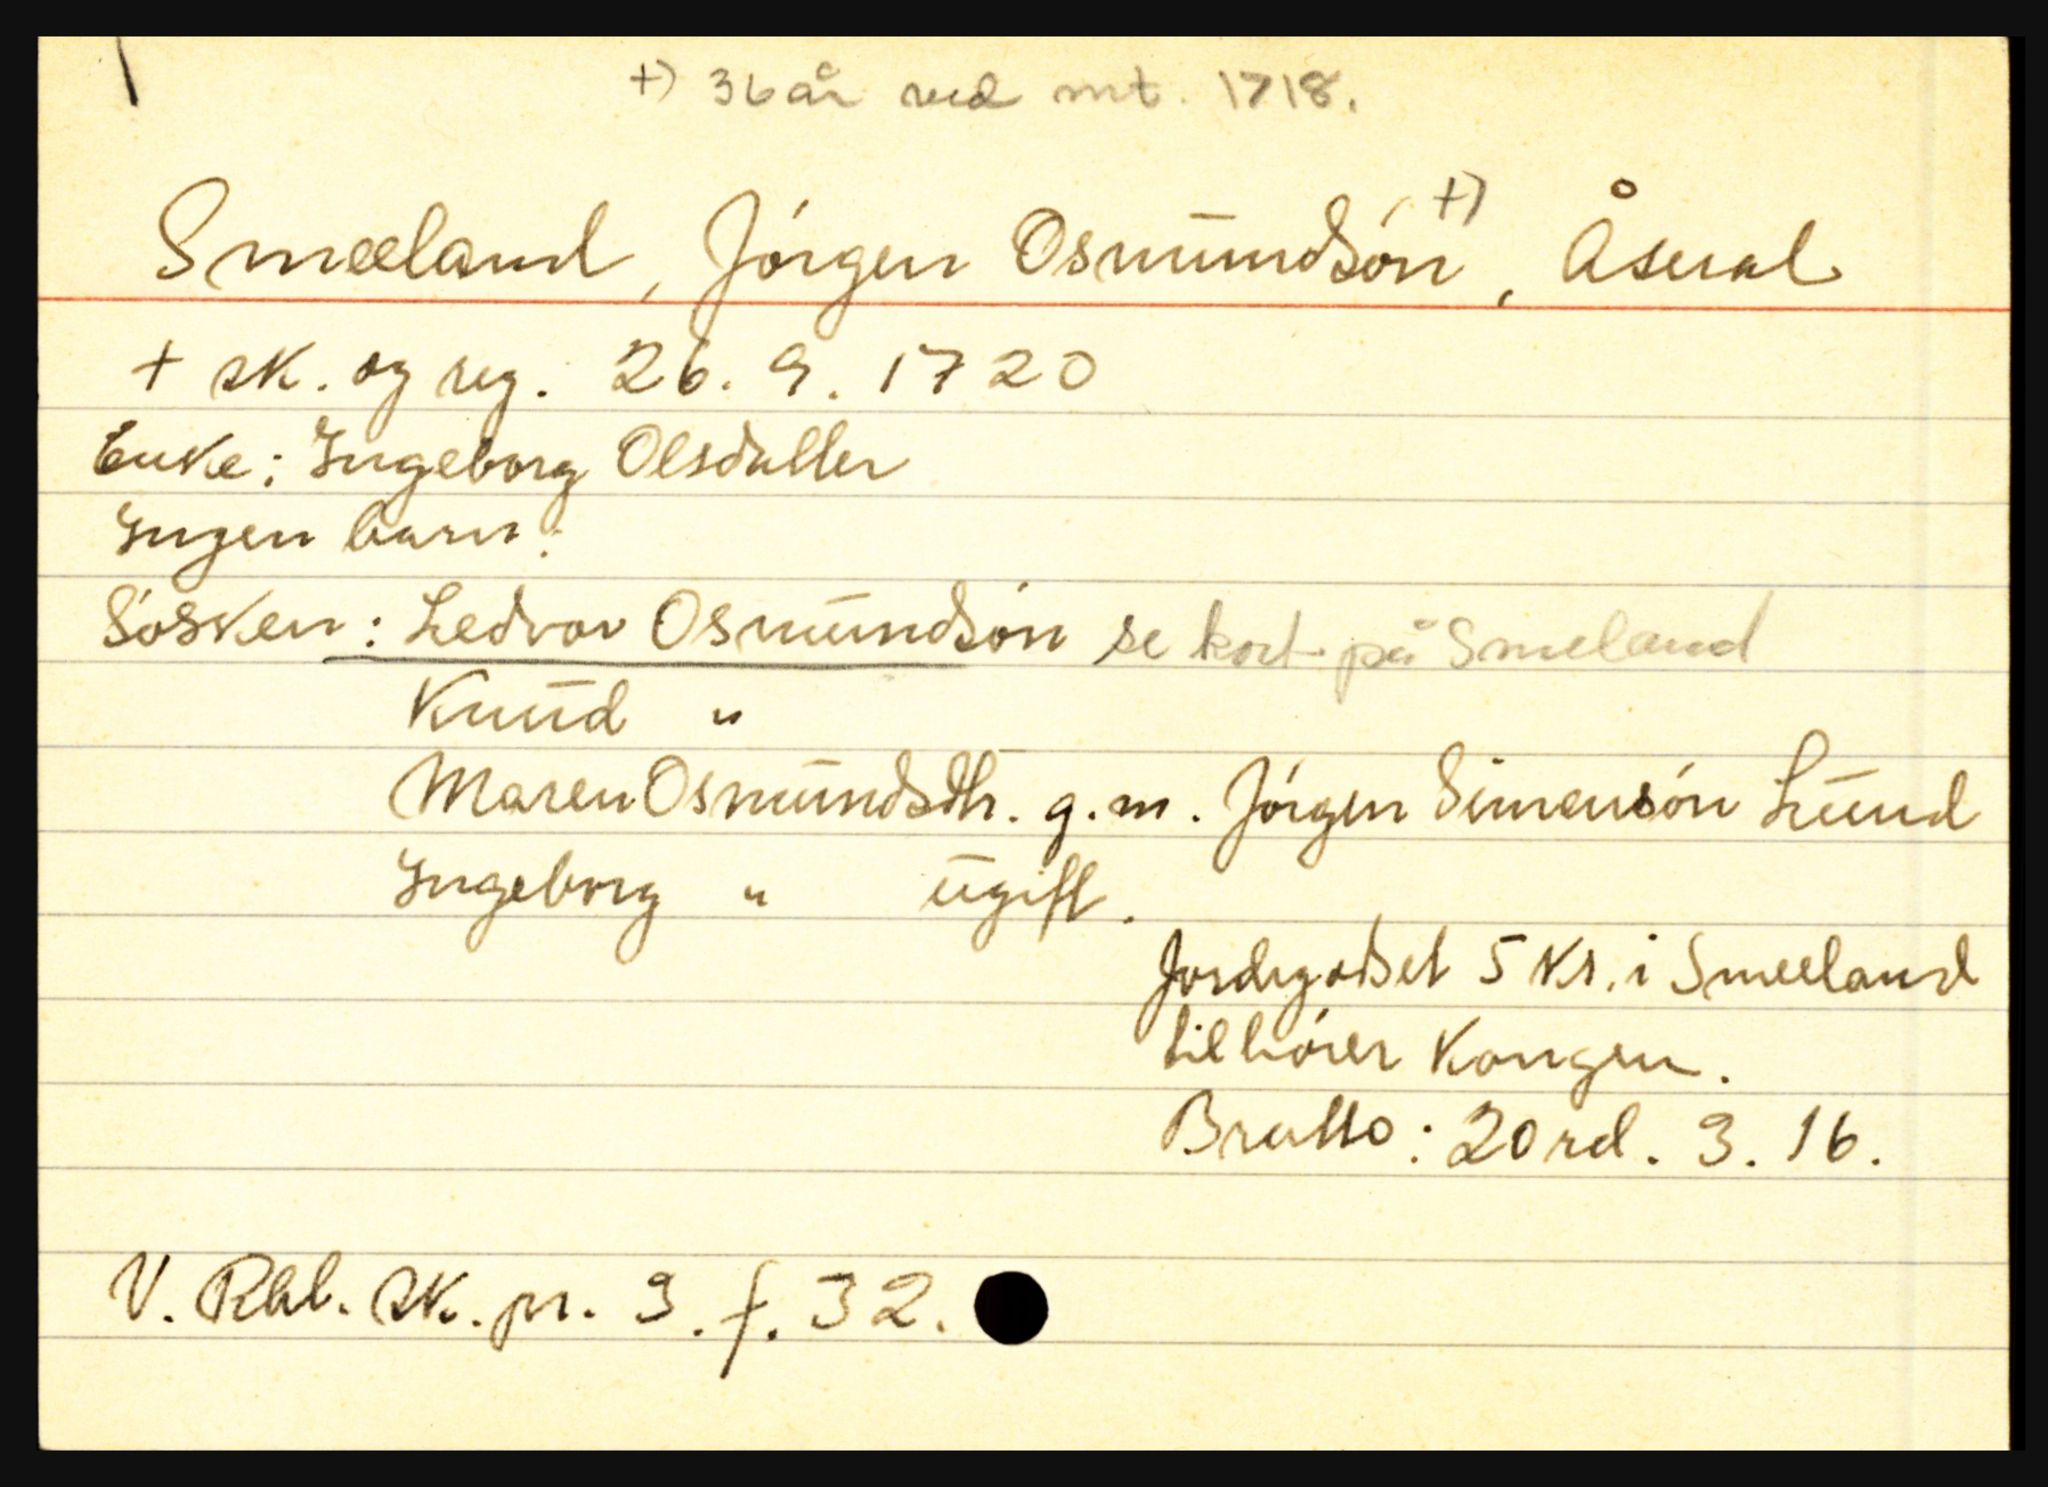 +) 36 år ved mt. 1718.
Smeeland, Jörgen Osmundsön +), Åseral
+ sk. og reg. 26. 9. 1720
Enke: Ingeborg Olsdatter
Ingen barn:
Sösken: Ledvor Osmundsön se kort på Smeland
Knud "
Maren Osmundsdtr. g.m. Jörgen Simensön Lund
Ingeborg " ugift.
Jordegodset 5 Ks. i Smeeland
tilhörer Kongen.
Brutto: 20 rd. 3. 16.
V. Rbl. sk. pr. 3. f. 32.